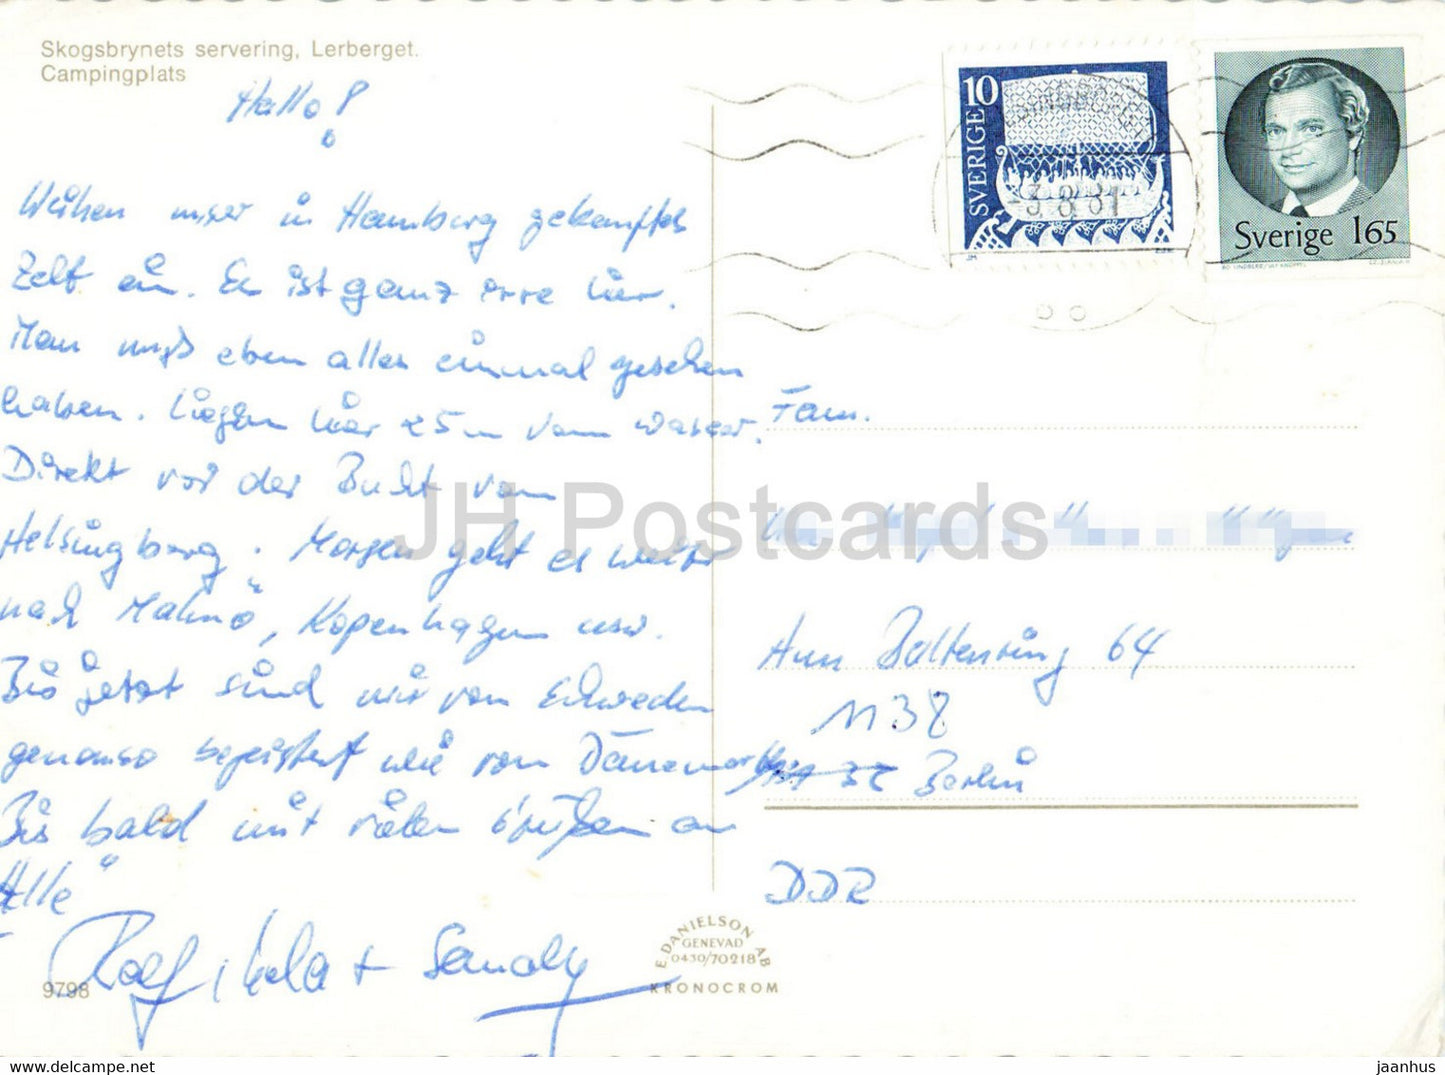 Skogsbrynets servering, Lerberget.
Campingplats
Hallo!
Weihen unser in Hamburg gekauftes
Zelt ein. Es ist ganz irre hier.
Man muß eben alles einmal gesehen
haben. Liegen hier 25 m vom Wasser.
Direkt vor der Bucht von
Helsingborg. Morgen geht es weiter
nach Malmö, Kopenhagen usw.
Bis jetzt sind wir von Schweden
genauso begeistert wie von Dänemark.
Bis bald mit vielen Grüßen an
"Alle"
Rolf, + Sandy
9798
E. DANIELSON AB
GENEVAD
0430/70218
KRONOCROM
10
SVERIGE
-3.8.81
Sverige 165
Fam.
Am Baltenring 64
1138
Berlin
DDR
JH Postcards
jaanhus
www.delcampe.net